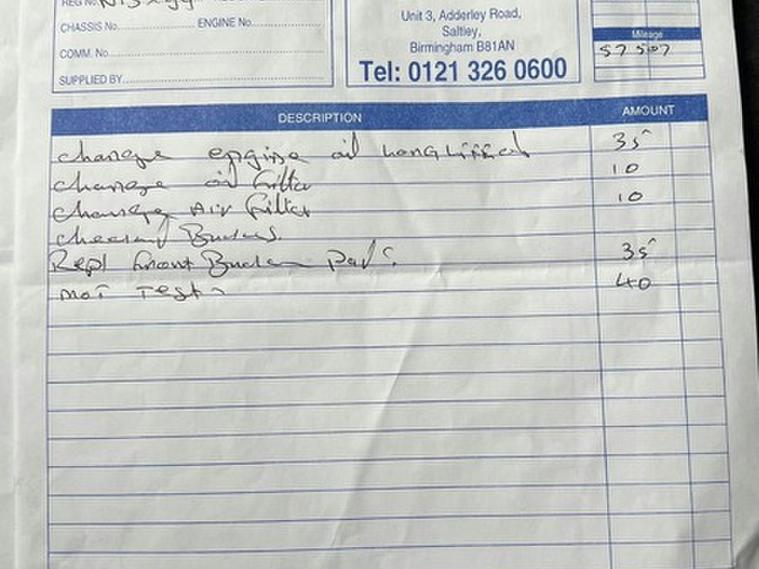 REG No.
CHASSIS No. ENGINE No.
COMM. No.
SUPPLIED BY
Unit 3, Adderley Road,
Saltley,
Birmingham B81AN
Tel: 0121 326 0600
Mileage
57507
DESCRIPTION AMOUNT
change engine oil Longlife 35
change oil filter 10
change Air filter 10
Repl front pads 35
mot test 40